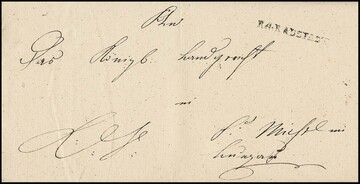 An
R.4. RADSTADT
Das Königl. Landgericht
in
St. Michael im
Lungau